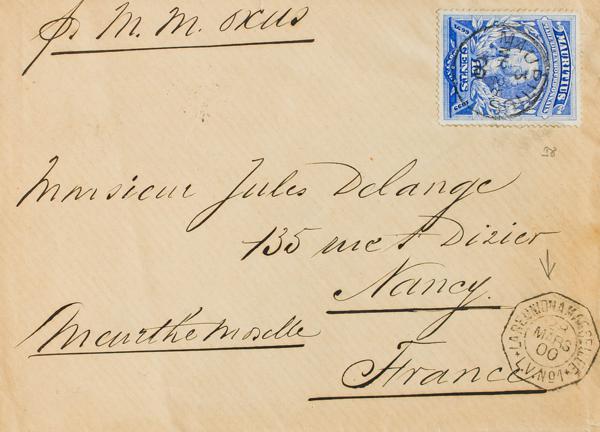 pr M. M. Oxus
MAURITIUS
CENTS
MAURITIUS
Monsieur Jules Delange
135 rue St Dizier
Nancy.
Meurthe Moselle
France
LA REUNION A MARSEILLE
MARS
00
L.V.No1